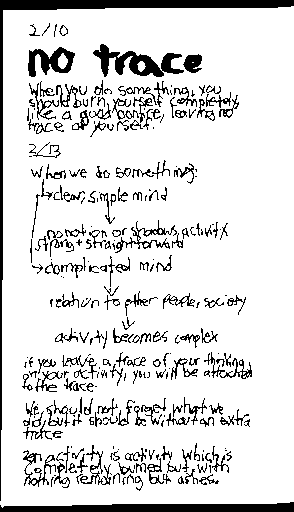 2/10
no trace
When you do something, you
should burn yourself completely,
like a good bonfire, leaving no
trace of yourself.
2/13
when we do something:
→clear, simple mind
no notion or shadows, activity
strong + straightforward
→complicated mind
relation to other people, society
activity becomes complex
if you leave a trace of your thinking
on your activity, you will be attached
to the trace.
We should not forget what we
did, but it should be without an extra
trace
zen activity is activity which is
completely burned out, with
nothing remaining but ashes.